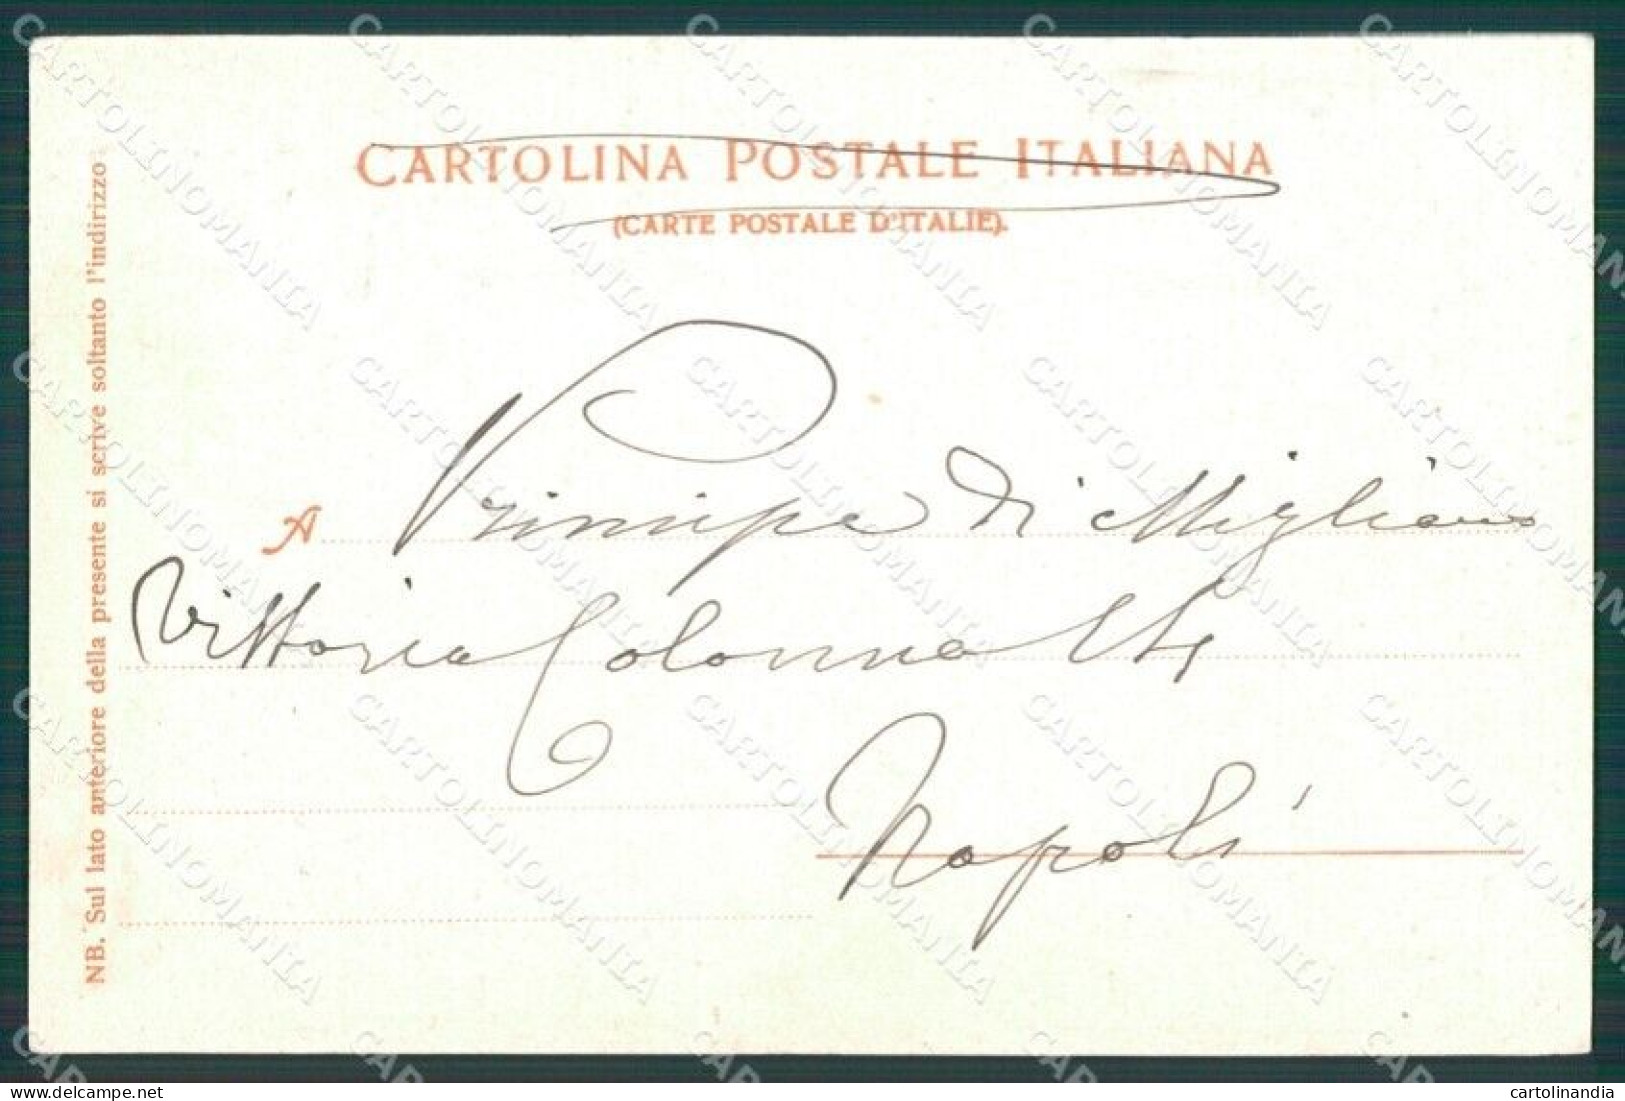 CARTOLINA POSTALE ITALIANA
(CARTE POSTALE D'ITALIE).
A Principe di Migliano
Vittoria Colonna
Napoli
NB. Sul lato anteriore della presente si scrive soltanto l'indirizzo
CARTOLINOMANIA
cartolinandia